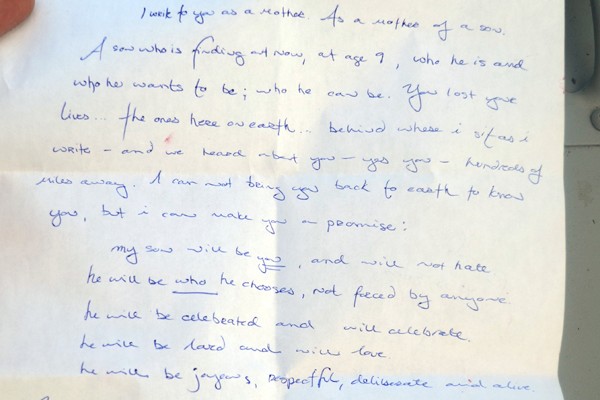 I write to you as a mother. As a mother of a son.
A son who is finding out now, at age 9, who he is and
who he wants to be; who he can be. You lost your
lives... the ones here on earth... behind where i sit as i
write - and we heard about you - yes you - hundreds of
miles away. I can not bring you back to earth to know
you, but i can make you a promise:
my son will be you, and will not hate
he will be who he chooses, not forced by anyone.
he will be celebrated and will celebrate.
he will be loved and will love
he will be joyous, respectful, deliberate and alive.